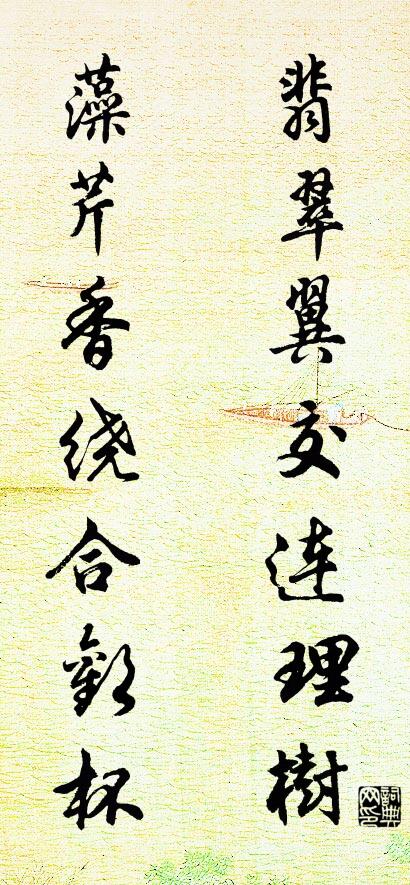 翡翠翼交连理樹
藻芹香绕合歡杯
詞典网印